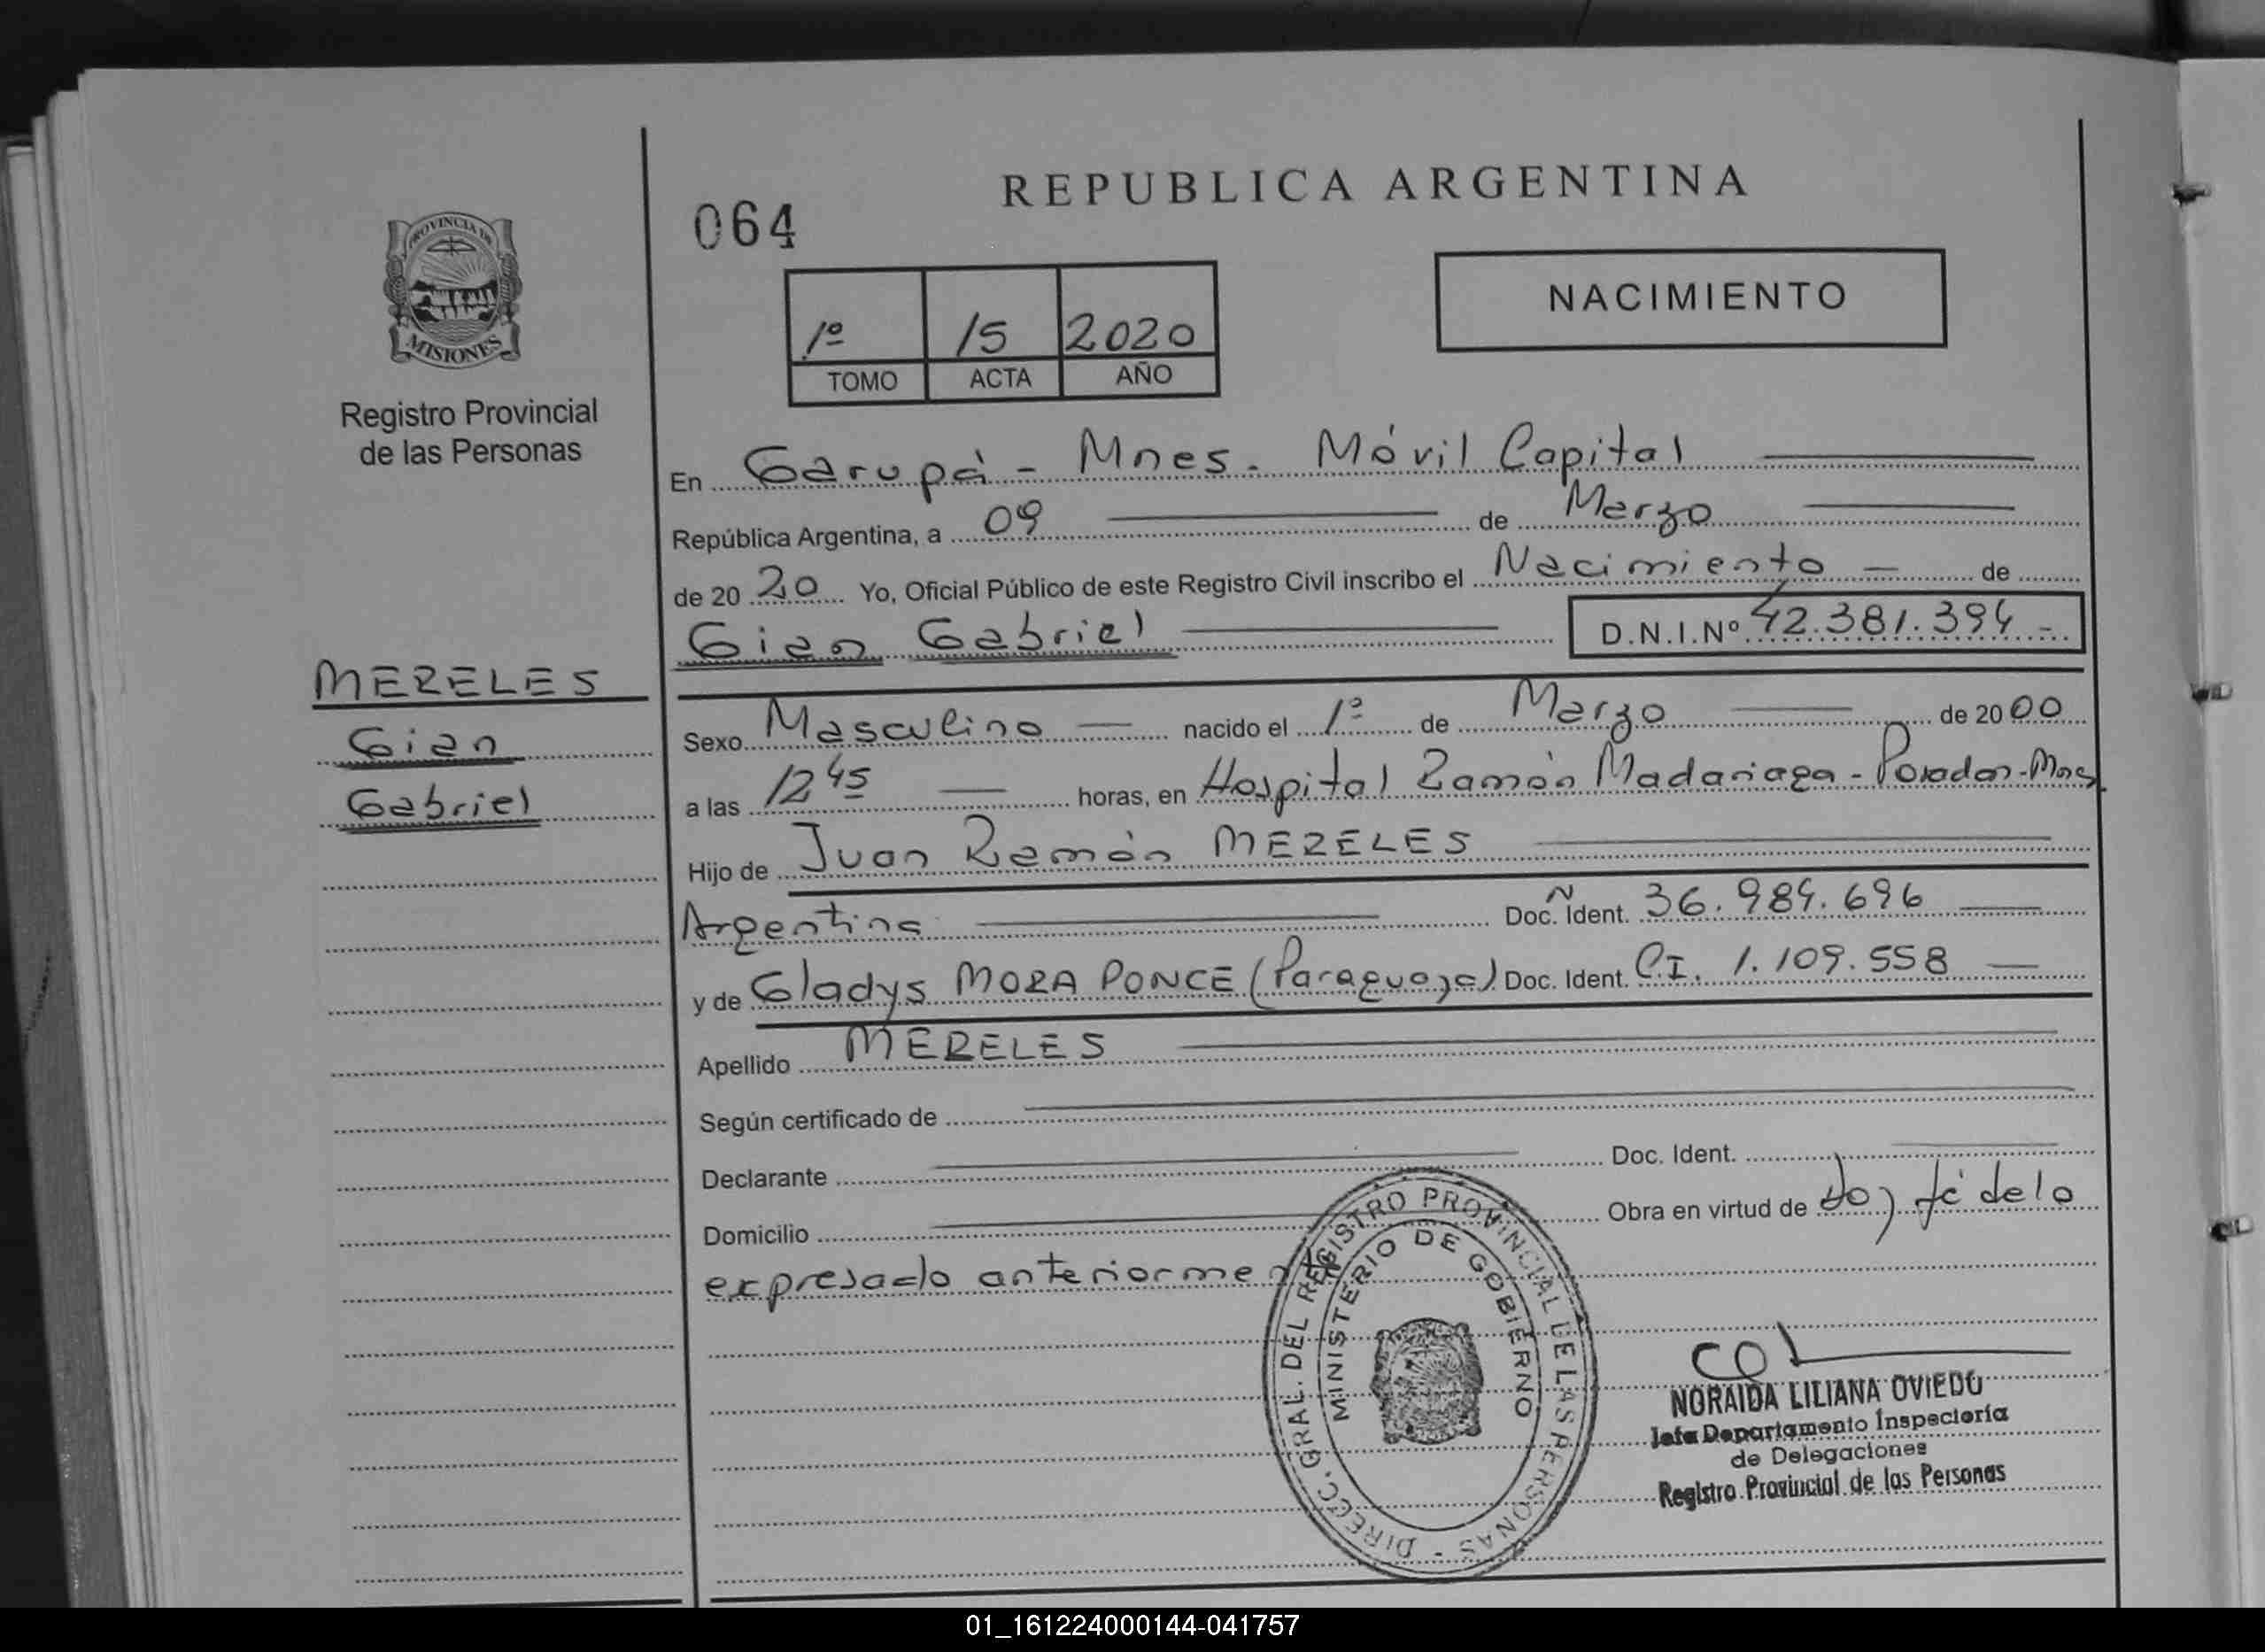 REPUBLICA ARGENTINA
064
PROVINCIA DE
MISIONES
Registro Provincial
de las Personas
1º 15 2020
TOMO ACTA AÑO
NACIMIENTO
En Garupá - Mnes. Móvil Capital
República Argentina, a 09 de Marzo
de 20 20 Yo, Oficial Público de este Registro Civil inscribo el Nacimiento de
Gian Gabriel D.N.I.Nº 42.381.394
MERELES
Gian
Gabriel
Sexo Masculino nacido el 1º de Marzo de 20 00
a las 12 45 horas, en Hospital Ramón Madariaga - Posadas - Mnes
Hijo de Juan Ramón MERELES
Argentina Doc. Ident. 36.984.696
y de Gladys MORA PONCE (Paraguaya) Doc. Ident. C.I. 1.109.558
Apellido MERELES
Según certificado de
Declarante Doc. Ident.
Domicilio Obra en virtud de doy fé de lo
expresado anteriormente
DIRECC. GRAL. DEL REGISTRO PROVINCIAL DE LAS PERSONAS -
MINISTERIO DE GOBIERNO
NORAIDA LILIANA OVIEDO
Jefa Departamento Inspectoría
de Delegaciones
Registro Provincial de las Personas
01_161224000144-041757